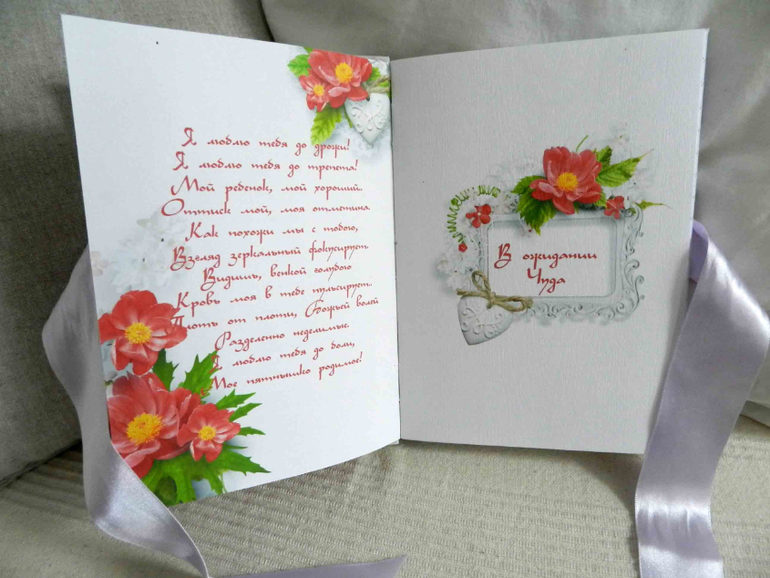 Я люблю тебя до дрожи!
Я люблю тебя до трепета!
Мой ребенок, мой хороший.
Оттиск мой, моя отметина.
Как похожи мы с тобою,
Взгляд зеркальный фокусирует
Видишь, венкой голубою
Кровь моя в тебе пульсирует.
Плоть от плоти, Божьей волей
Разделенно неделимые.
Я люблю тебя до боли,
Мое пятнышко родимое!
В ожидании
Чуда